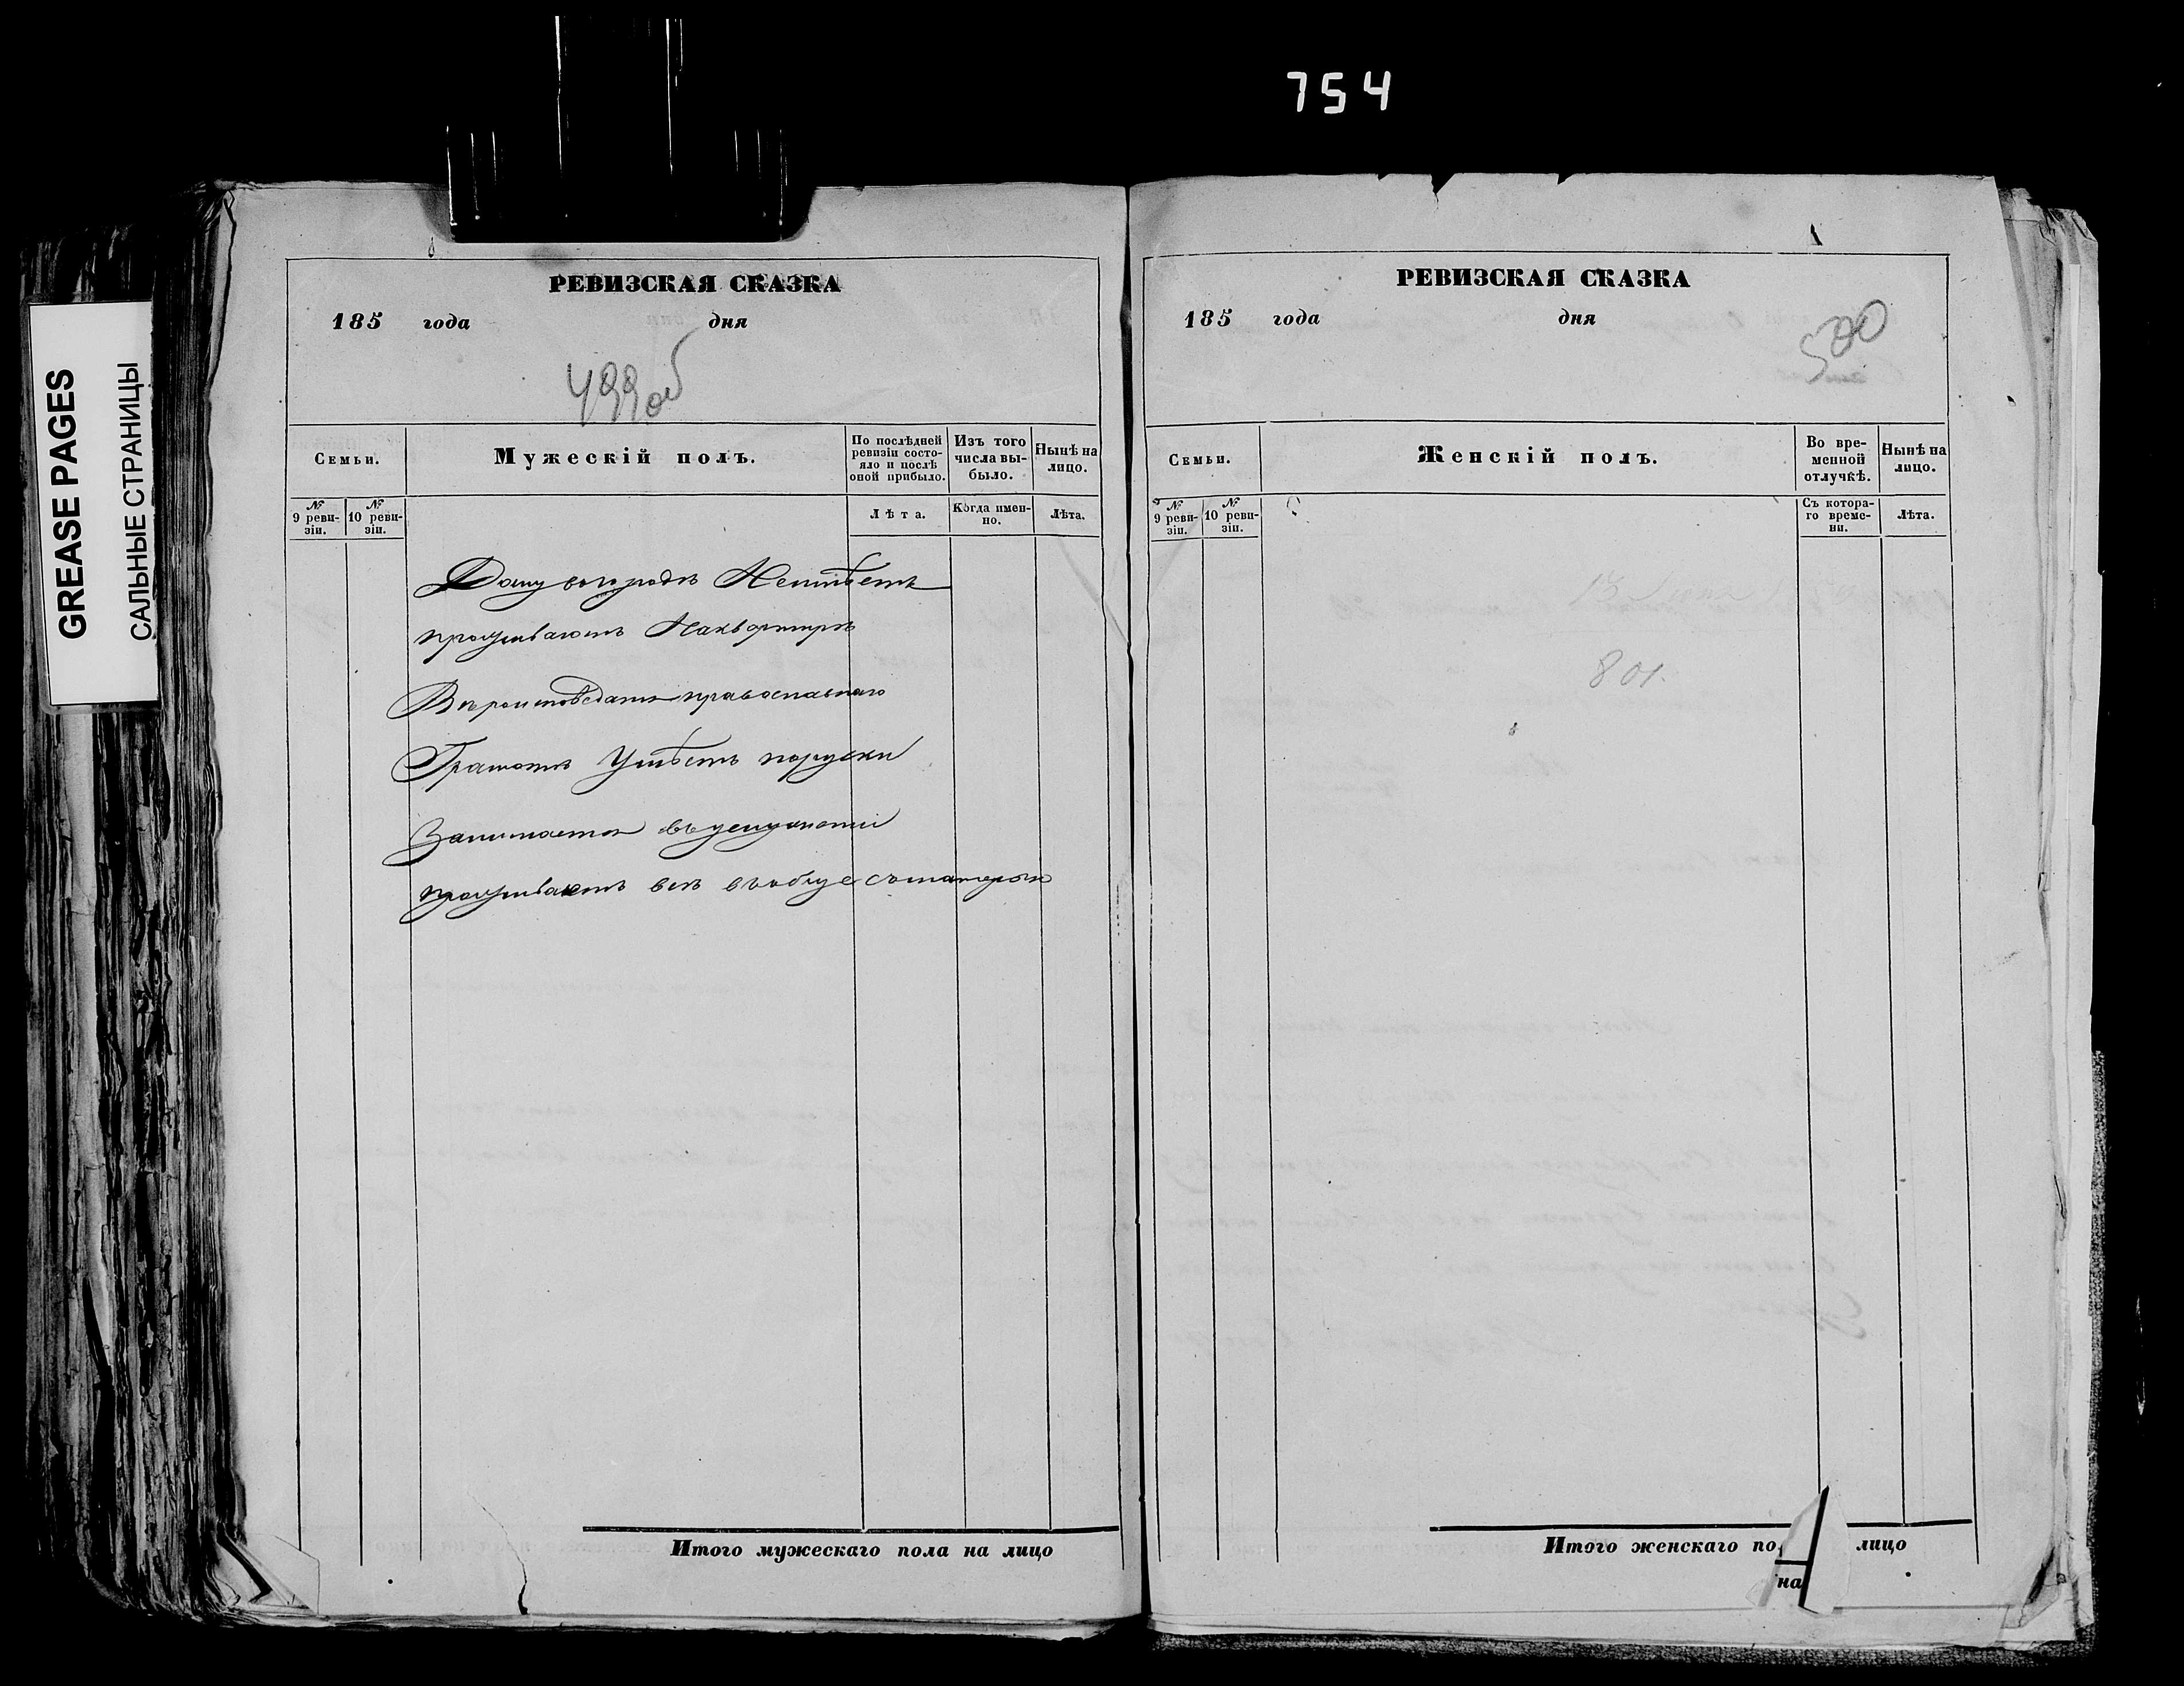 754
GREASE PAGES
САЛЬНЫЕ СТРАНИЦЫ
РЕВИЗСКАЯ СКАЗКА
185 года дня
499 об
Семьи.
Мужескій полъ.
По послѣдней ревизіи состояло и послѣ оной прибыло.
Изъ того числа выбыло.
Нынѣ на лицо.
№ 9 ревизіи.
№ 10 ревизіи.
Лѣта.
Когда именно.
Лѣта.
Дому вгородѣ Неимѣетъ
проживаютъ Наквартирѣ
Вѣроисповѣданія православнаго
Грамотѣ Умѣетъ поруски
Занимается въуслуженіи
проживаютъ всѣ въобще съматерью
Итого мужескаго пола на лицо
РЕВИЗСКАЯ СКАЗКА
185 года дня
500
Семьи.
Женскій полъ.
Во временной отлучкѣ.
Нынѣ на лицо.
№ 9 ревизіи.
№ 10 ревизіи.
Съ котораго времени.
Лѣта.
801.
Итого женскаго по лицо
на